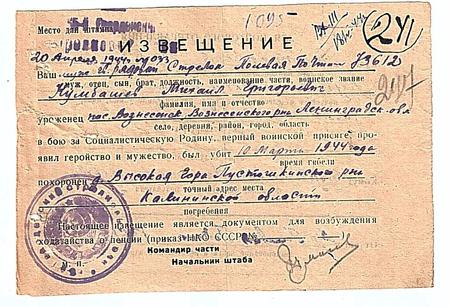 1095
Место для штампа
241
ИЗВЕЩЕНИЕ
20 Апреля 1944
Ваш муж гв. рядовой Стрелок Полевая Почта 73612
муж, отец, сын, брат, должность, наименование части, воинское звание
Михаил Григорьевич
фамилия, имя и отчество
уроженец пос. Вознесенок Вознесенского р-на Ленинградск. обл
село, деревня, район, город, область
в бою за Социалистическую Родину, верный воинской присяге, проя-
вил геройство и мужество, был убит 10 Марта 1944 года
время гибели
похоронен д. Высокая Гора Пустошкинского р-на
точный адрес места
Калининской области
погребения
Настоящее извещение является документом для возбуждения
ходатайства о пенсии (приказ НКО СССР №
Командир части
Начальник штаба